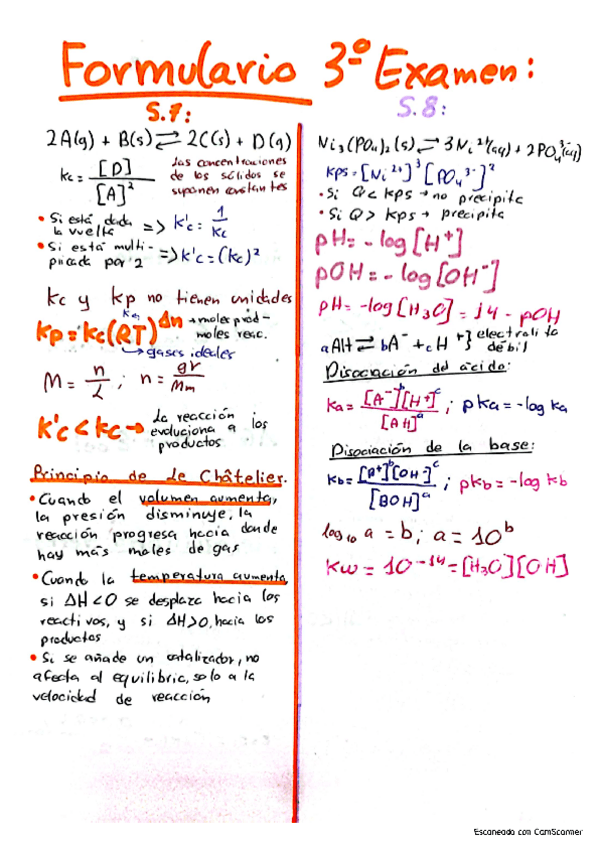 Formulario 3º Examen:
S.7:
2A(g) + B(s) ⇌ 2C(s) + D(g)
Kc = [D] / [A]²
Las concentraciones
de los sólidos se
suponen constantes
• Si está dada
la vuelta => K'c = 1/Kc
• Si está multi-
plicada por 2 => K'c = (Kc)²
Kc y Kp no tienen unidades
Kp = Kc(RT)^Δn → moles prod -
moles reac.
→ gases ideales
M = n/L ; n = gr/Mm
K'c < Kc → La reacción
evoluciona a los
productos
Principio de Le Châtelier.
• Cuando el volumen aumenta,
la presión disminuye, la
reacción progresa hacia donde
hay más moles de gas
• Cuando la temperatura aumenta,
si ΔH<0 se desplaza hacia los
reactivos, y si ΔH>0, hacia los
productos
• Si se añade un catalizador, no
afecta al equilibrio, solo a la
velocidad de reacción
S.8:
Ni₃(PO₄)₂(s) ⇌ 3Ni²⁺(aq) + 2PO₄³⁻(aq)
Kps = [Ni²⁺]³[PO₄³⁻]²
• Si Q < Kps → no precipita
• Si Q > Kps → precipita
pH = - log[H⁺]
pOH = - log[OH⁻]
pH = -log[H₃O] = 14 - pOH
aAH ⇌ bA⁻ + cH⁺} electrolito
débil
Disociación del ácido:
Ka = [A⁻]ᵇ[H⁺]ᶜ / [AH]ᵃ ; pKa = -log Ka
Disociación de la base:
Kb = [B⁺]ᵇ[OH⁻]ᶜ / [BOH]ᵃ ; pKb = -log Kb
log₁₀ a = b ; a = 10ᵇ
Kw = 10⁻¹⁴ = [H₃O][OH]
Escaneado con CamScanner